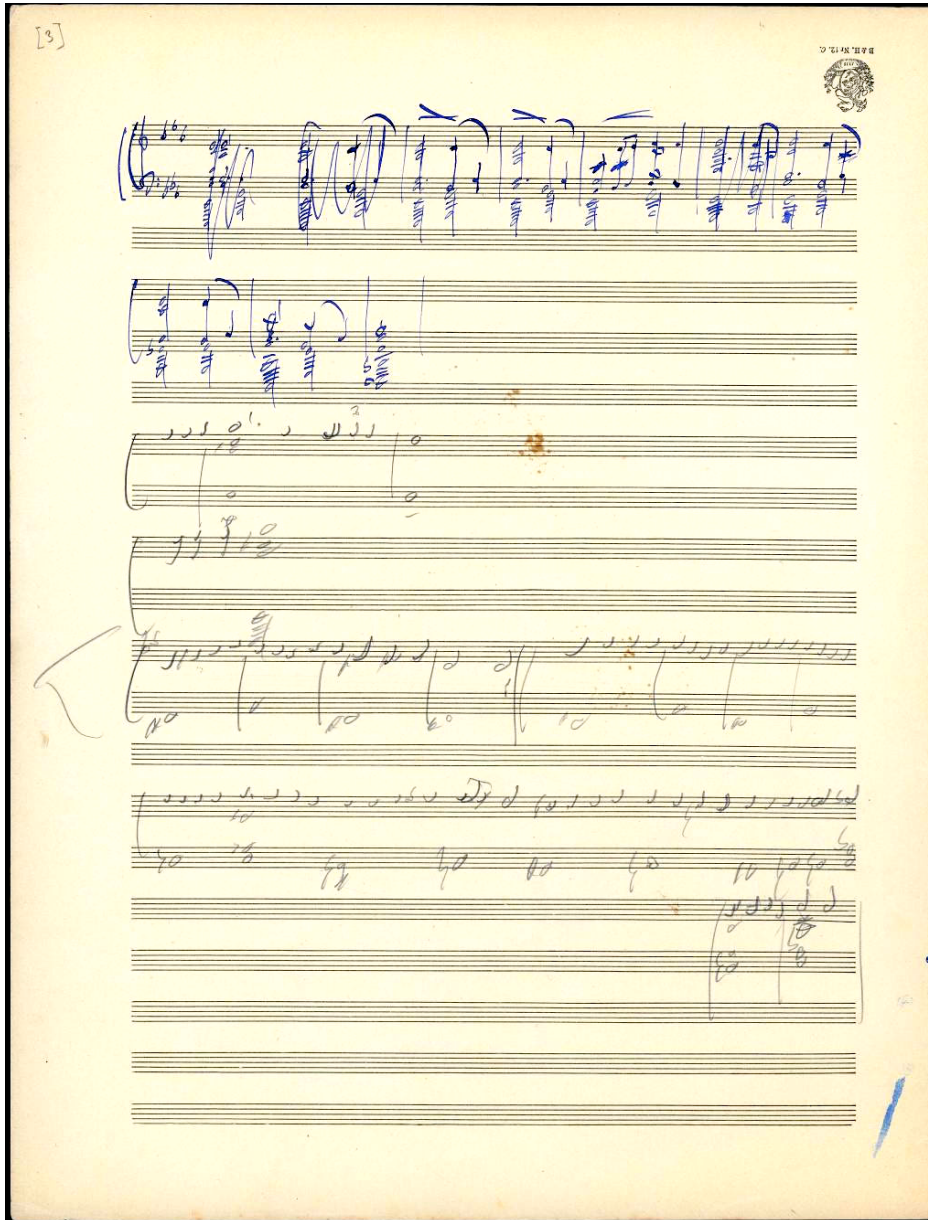 [3]
B & H. Nr 12. C.
3